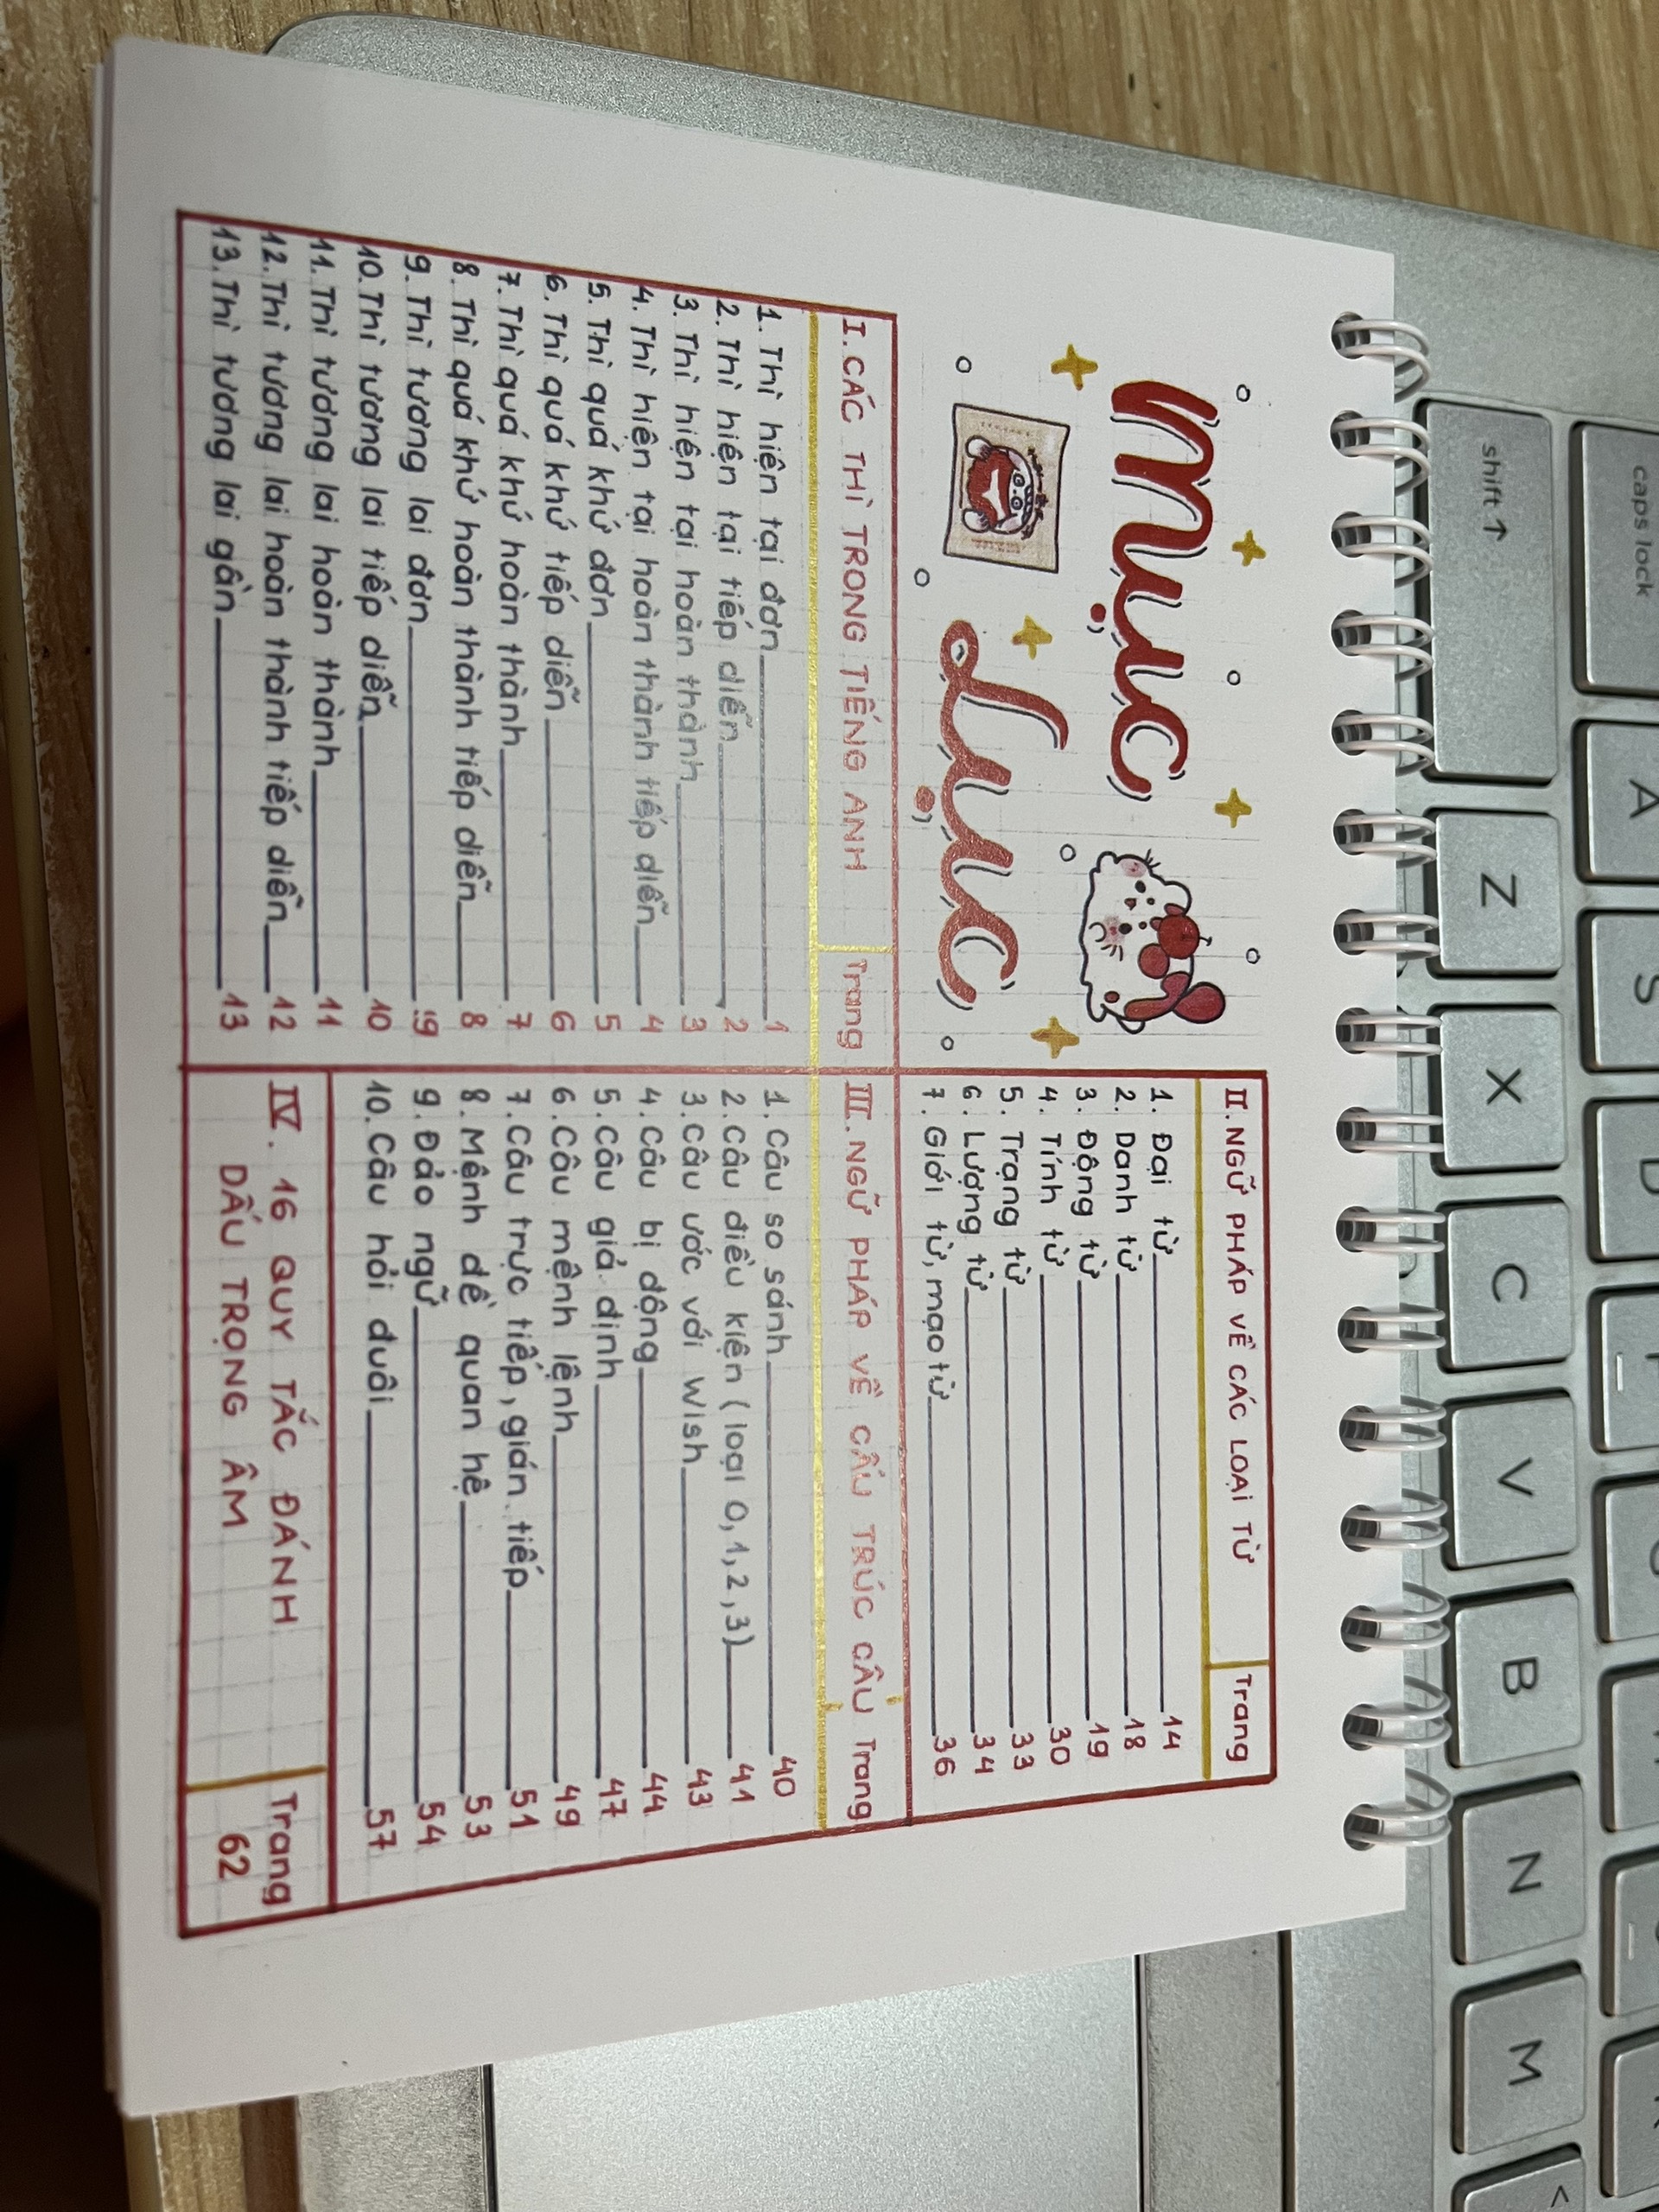 Mục
Lục
I. CÁC THÌ TRONG TIẾNG ANH Trang
1. Thì hiện tại đơn 1
2. Thì hiện tại tiếp diễn 2
3. Thì hiện tại hoàn thành 3
4. Thì hiện tại hoàn thành tiếp diễn 4
5. Thì quá khứ đơn 5
6. Thì quá khứ tiếp diễn 6
7. Thì quá khứ hoàn thành 7
8. Thì quá khứ hoàn thành tiếp diễn 8
9. Thì tương lai đơn 9
10. Thì tương lai tiếp diễn 10
11. Thì tương lai hoàn thành 11
12. Thì tương lai hoàn thành tiếp diễn 12
13. Thì tương lai gần 13
II. NGỮ PHÁP VỀ CÁC LOẠI TỪ Trang
1. Đại từ 14
2. Danh từ 18
3. Động từ 19
4. Tính từ 30
5. Trạng từ 33
6. Lượng từ 34
7. Giới từ, mạo từ 36
III. NGỮ PHÁP VỀ CẤU TRÚC CÂU Trang
1. Câu so sánh 40
2. Câu điều kiện (loại 0,1,2,3) 41
3. Câu ước với Wish 43
4. Câu bị động 44
5. Câu giả định 47
6. Câu mệnh lệnh 49
7. Câu trực tiếp, gián tiếp 51
8. Mệnh đề quan hệ 53
9. Đảo ngữ 54
10. Câu hỏi đuôi 57
IV. 16 QUY TẮC ĐÁNH Trang
DẤU TRỌNG ÂM 62
caps lock
A
S
D
shift ↑
Z
X
C
V
B
N
M
<